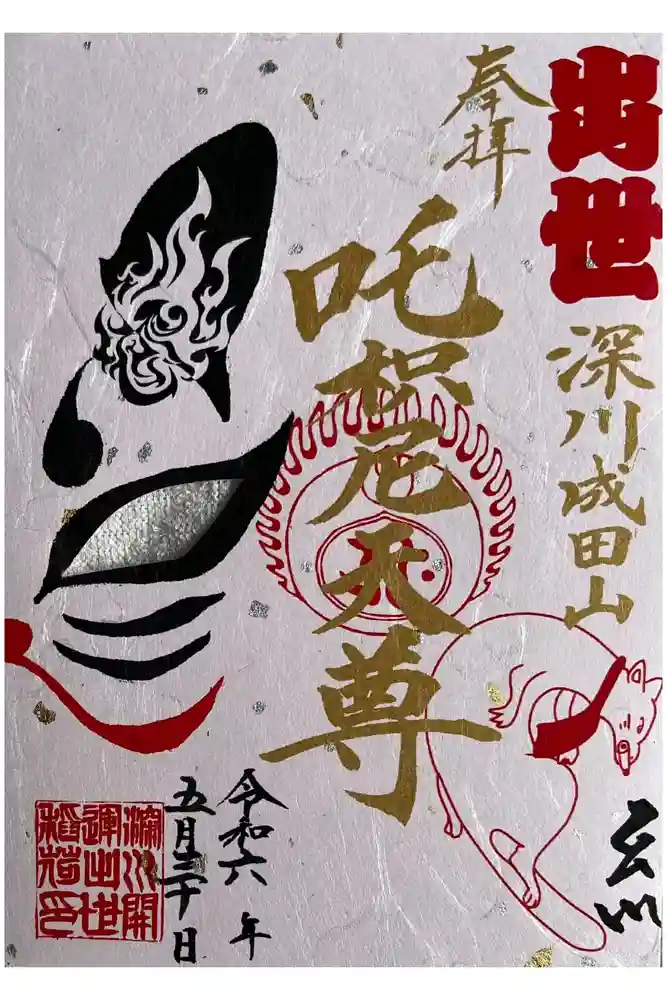 出世
深川成田山
奉拝
吒枳尼天尊
令和六年
五月三十日
深川開
運出世
稲荷印